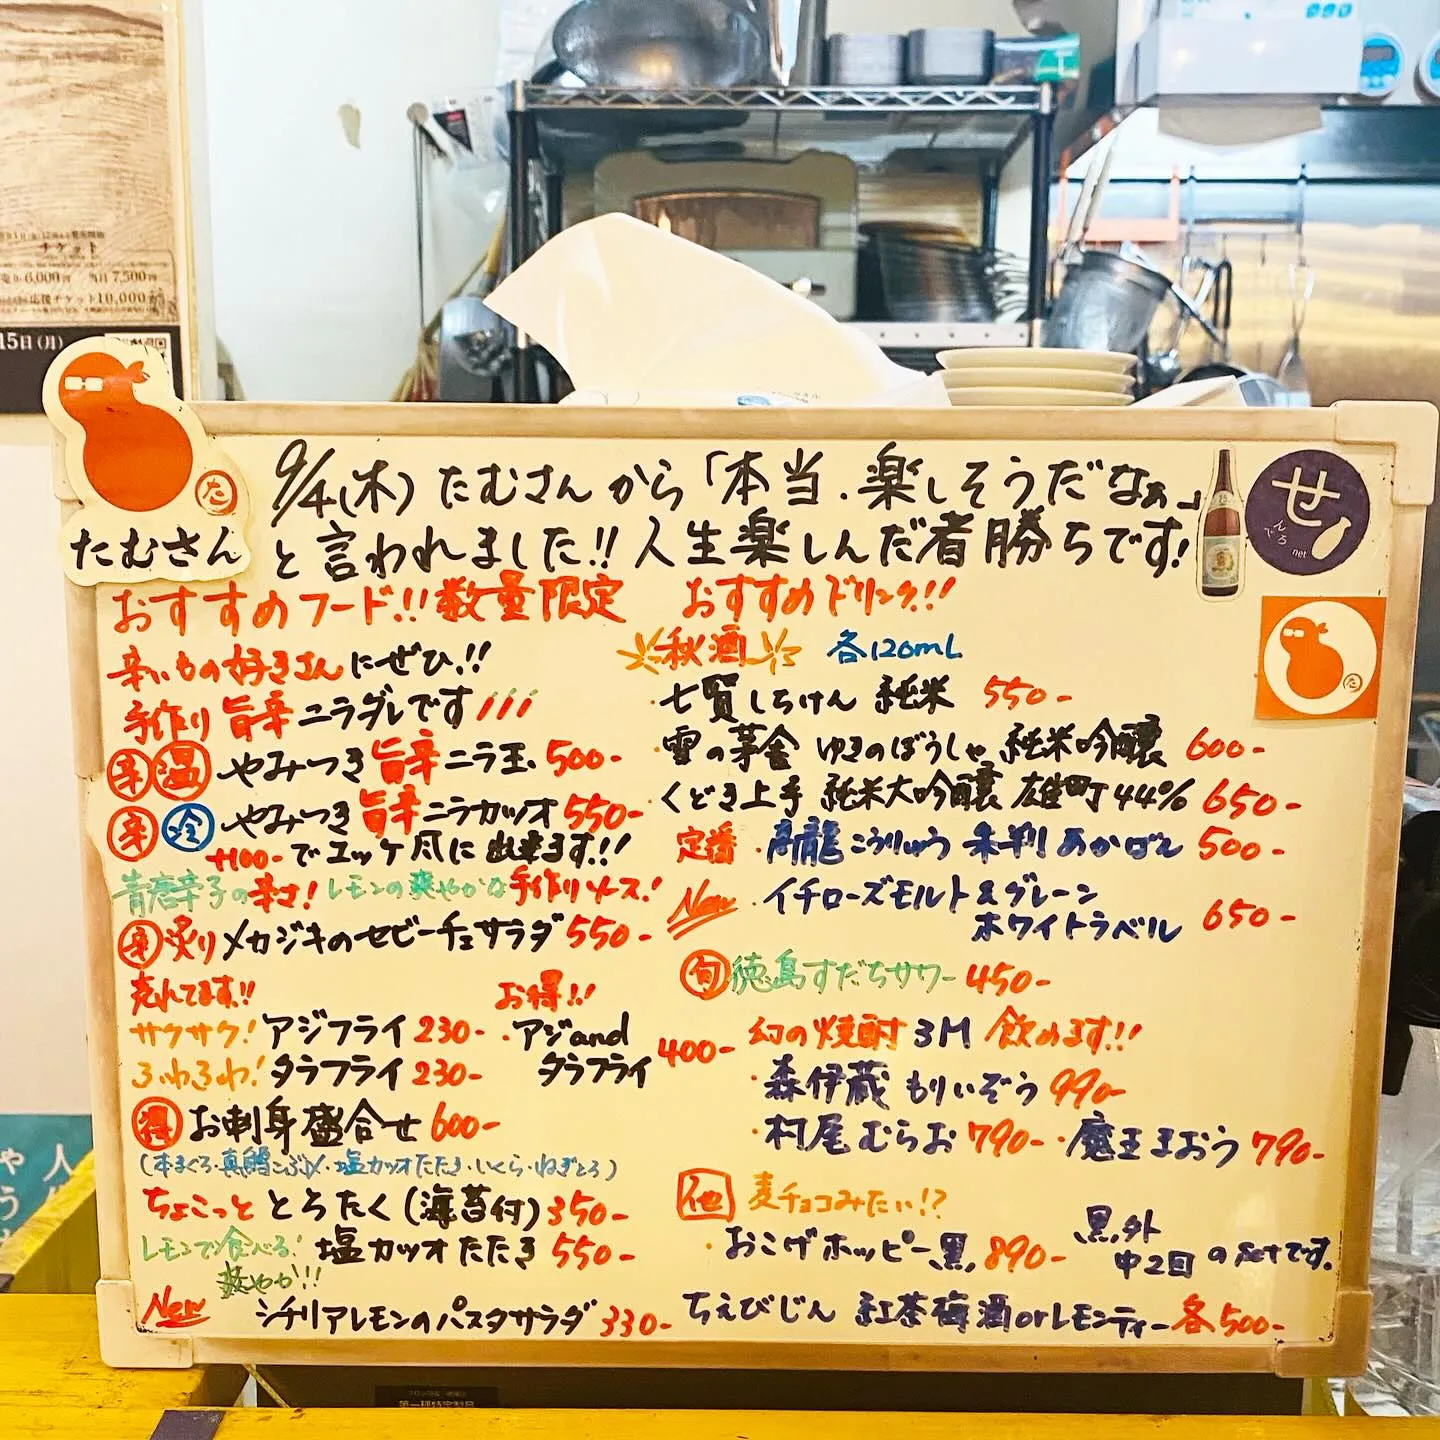 チケット
6,000円 当日 7,500円
応援チケット10,000
15日(月)
たむさん
た
9/4(木) たむさんから「本当、楽しそうだなぁ」
と言われました!!人生楽しんだ者勝ちです!
せ
んでろ
net
おすすめフード!!数量限定
辛いもの好きさんにぜひ!!
手作り旨辛ニラダレです!!!
辛 温 やみつき旨辛ニラ玉 500-
辛 冷 やみつき旨辛ニラカツオ 550-
+100-でユッケ風に出来ます!!
青唐辛子の辛さ!レモンの爽やかな手作りソース!
辛 炙りメカジキのセビーチェサラダ 550-
売れてます!!
サクサク!アジフライ 230-
ふわふわ!タラフライ 230-
お得!!
・アジand
タラフライ 400-
得 お刺身盛合せ 600-
(本まぐろ・真鯛こぶ〆・塩カツオたたき・いくら・ねぎとろ)
ちょこっと とろたく(海苔付)350-
レモンで食べる! 塩カツオたたき 550-
爽やか!!
New シチリアレモンのパスタサラダ 330-
おすすめドリンク!!
秋酒 各120mL
・七賢 しちけん 純米 550-
・雪の茅舎 ゆきのぼうしゃ 純米吟醸 600-
・くどき上手 純米大吟醸 雄町44% 650-
定番 ・ こうりゅう あかばん 500-
New ・イチローズモルト&グレーン
ホワイトラベル 650-
旬 徳島すだちサワー 450-
幻の焼酎 3M 飲めます!!
・森伊蔵 もりいぞう 990-
・村尾 むらお 790- ・魔王 まおう 790-
他 麦チョコみたい!?
・おこげホッピー黒 890- 黒、外
中2回 のsetです。
ちえびじん 紅茶梅酒orレモンティー各500-